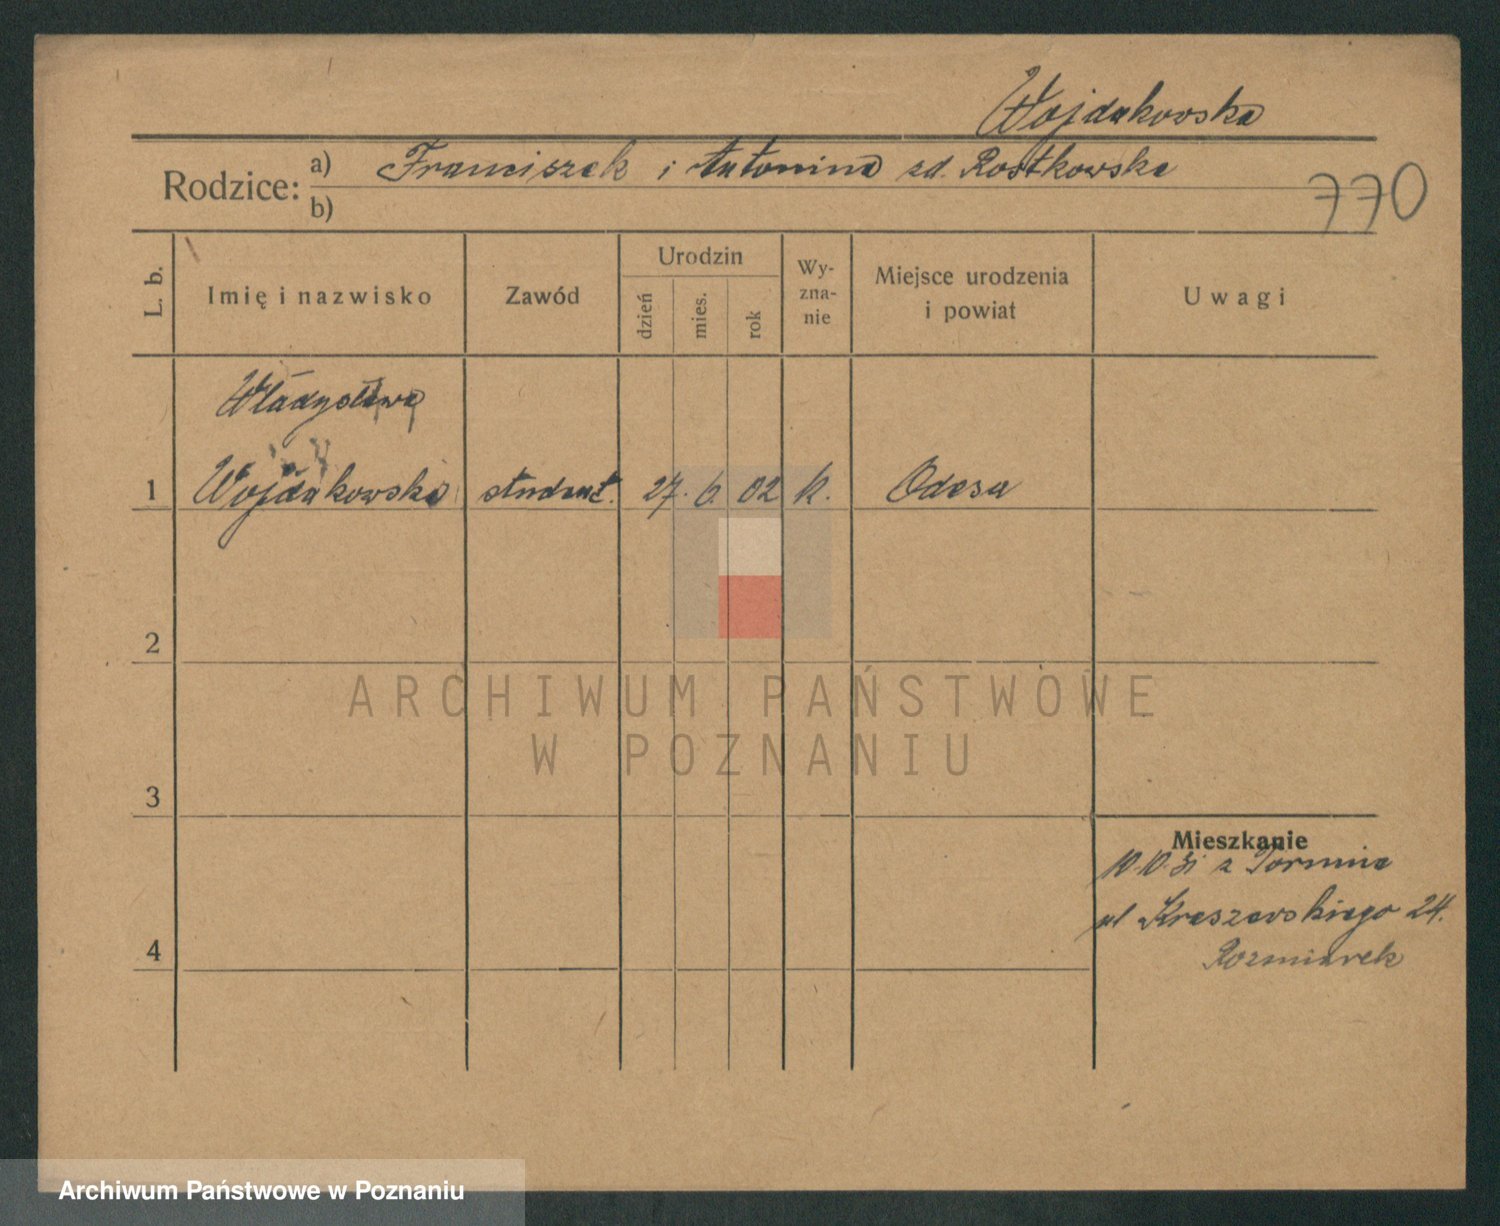 Wojdakowska
Rodzice: a) Franciszek i Antonina zd. Rostkowska
b)
770
L. b.
Imię i nazwisko
Zawód
Urodzin
dzień
mies.
rok
Wy-
zna-
nie
Miejsce urodzenia
i powiat
Uwagi
Władysława
1 Wojdakowska student. 27. 6. 02 k. Odesa
2
ARCHIWUM PAŃSTWOWE
W POZNANIU
3
Mieszkanie
10.10.31 z
ul Kraszewskiego 24.
4
Rozmiarek
Archiwum Państwowe w Poznaniu